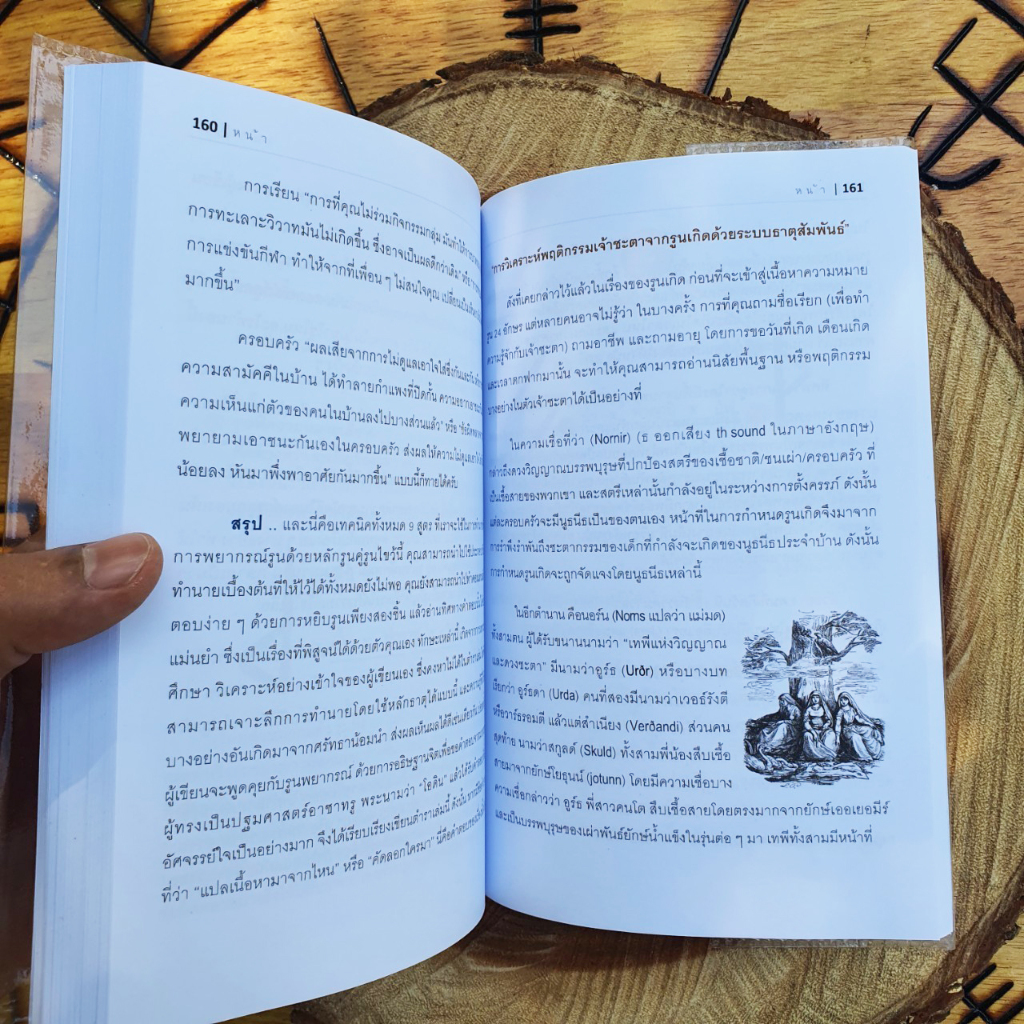 160 | หน้า
การเรียน “การที่คุณไม่ร่วมกิจกรรมกลุ่ม มันทำให้
การทะเลาะวิวาทมันไม่เกิดขึ้น ซึ่งอาจเป็นผลดีกว่าเดิม”
การแข่งขันกีฬา ทำให้จากที่เพื่อน ๆ ไม่สนใจคุณ เปลี่ยนเป็น
มากขึ้น”
ครอบครัว “ผลเสียจากการไม่ดูแลเอาใจใส่ซึ่งกันและกัน
ความสามัคคีในบ้าน ได้ทำลายกำแพงที่ปิดกั้น
ความเห็นแก่ตัวของคนในบ้านลงไปบางส่วนแล้ว” หรือ
พยายามเอาชนะกันเองในครอบครัว ส่งผลให้ความ
น้อยลง หันมาพึ่งพาอาศัยกันมากขึ้น” แบบนี้ก็ทายได้ครับ
สรุป .. และนี่คือเทคนิคทั้งหมด ๑ สูตร ที่เราจะใช้ในการ
การพยากรณ์รูนด้วยหลักรูนคู่รูนไขว้นี้ คุณสามารถนำไปใช้
ทำนายเบื้องต้นที่ให้ไว้ได้ทั้งหมดยังไม่พอ คุณยังสามารถนำไป
ตอบง่าย ๆ ด้วยการหยิบรูนเพียงสองชิ้น แล้วอ่านทิศทางคำตอบ
แม่นยำ ซึ่งเป็นเรื่องที่พิสูจน์ได้ด้วยตัวคุณเอง ทักษะเหล่านี้ เกิดจาก
ศึกษา วิเคราะห์อย่างเข้าใจของผู้เขียนเอง ซึ่งคงหาไม่ได้ในตำรา
สามารถเจาะลึกการทำนายโดยใช้หลักธาตุได้แบบนี้ และ
บางอย่างอันเกิดมาจากศรัทธาน้อมนำ ส่งผลเห็นผลได้ดีเช่นเดียวกัน
ผู้เขียนจะพูดคุยกับรูนพยากรณ์ ด้วยการอธิษฐานจิตเพื่อขอคำตอบ
ผู้ทรงเป็นปฐมศาสตร์อาซาทรู พระนามว่า “โอดิน” แล้วได้รับ
อัศจรรย์ใจเป็นอย่างมาก จึงได้เรียบเรียงเขียนตำราเล่มนี้ ดังนั้น
ที่ว่า “แปลเนื้อหามาจากไหน” หรือ “คัดลอกใครมา” นี่คือคำตอบของ
หน้า | 161
“การวิเคราะห์พฤติกรรมเจ้าชะตาจากรูนเกิดด้วยระบบธาตุสัมพันธ์”
ดังที่เคยกล่าวไว้แล้วในเรื่องของรูนเกิด ก่อนที่จะเข้าสู่เนื้อหาความหมาย
รูน 24 อักษร แต่หลายคนอาจไม่รู้ว่า ในบางครั้ง การที่คุณถามชื่อเรียก (เพื่อทำ
ความรู้จักกับเจ้าชะตา) ถามอาชีพ และถามอายุ โดยการขอวันที่เกิด เดือนเกิด
และเวลาตกฟากมานั้น จะทำให้คุณสามารถอ่านนิสัยพื้นฐาน หรือพฤติกรรม
บางอย่างในตัวเจ้าชะตาได้เป็นอย่างที่
ในความเชื่อที่ว่า (Nornir) (ธ ออกเสียง th sound ในภาษาอังกฤษ)
กล่าวถึงดวงวิญญาณบรรพบุรุษที่ปกป้องสตรีของเชื้อชาติ/ชนเผ่า/ครอบครัว ที่
เป็นเชื้อสายของพวกเขา และสตรีเหล่านั้นกำลังอยู่ในระหว่างการตั้งครรภ์ ดังนั้น
แต่ละครอบครัวจะมีนูธนีธเป็นของตนเอง หน้าที่ในการกำหนดรูนเกิดจึงมาจาก
การรำพึงรำพันถึงชะตากรรมของเด็กที่กำลังจะเกิดของนูธนีธประจำบ้าน ดังนั้น
การกำหนดรูนเกิดจะถูกจัดแจงโดยนูธนีธเหล่านี้
ในอีกตำนาน คือนอร์น (Norns แปลว่า แม่มด)
ทั้งสามตน ผู้ได้รับขนานนามว่า “เทพีแห่งวิญญาณ
และดวงชะตา” มีนามว่าอูร์ธ (Urðr) หรือบางบท
เรียกว่า อูร์ธดา (Urda) คนที่สองมีนามว่าเวอธ์รังดี
หรือวาร์ธรอมดี แล้วแต่สำเนียง (Verðandi) ส่วนคน
สุดท้าย นามว่าสกูลด์ (Skuld) ทั้งสามพี่น้องสืบเชื้อ
สายมาจากยักษ์โยธุนน์ (jotunn) โดยมีความเชื่อบาง
ความเชื่อกล่าวว่า อูร์ธ พี่สาวคนโต สืบเชื้อสายโดยตรงมาจากยักษ์เออเยอมีร์
และเป็นบรรพบุรุษของเผ่าพันธ์ยักษ์น้ำแข็งในรุ่นต่อ ๆ มา เทพีทั้งสามมีหน้าที่